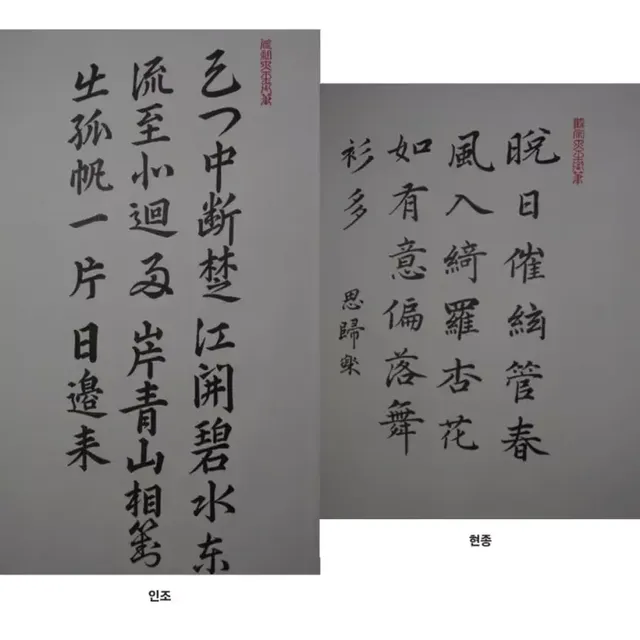 天门中断楚江開碧水东
流至此迴两岸青山相對
出孤帆一片日邊来
인조
晚日催絃管春
風入綺羅杏花
如有意偏落舞
衫多
思歸樂
현종